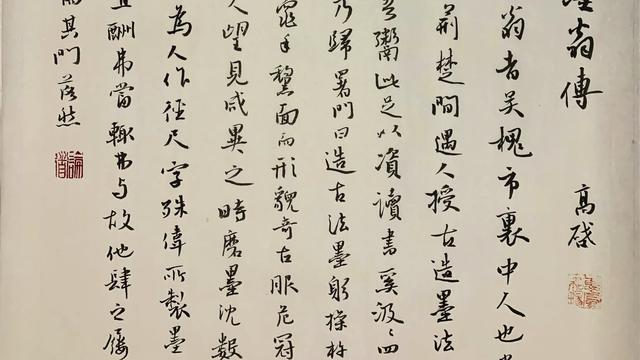 墨翁傳 高啓
翁者吴槐市裏中人也
荆楚間遇人授古造墨法
吾鬻此足以資讀書奚汲〻四
乃歸署門曰造古法墨躬操杵
龜手黧面而形貌奇古服危冠
人望見咸異之時磨墨沈數
為人作徑尺字殊偉所製墨
直酬弗當輒弗与故他肆之屨
而其門落然